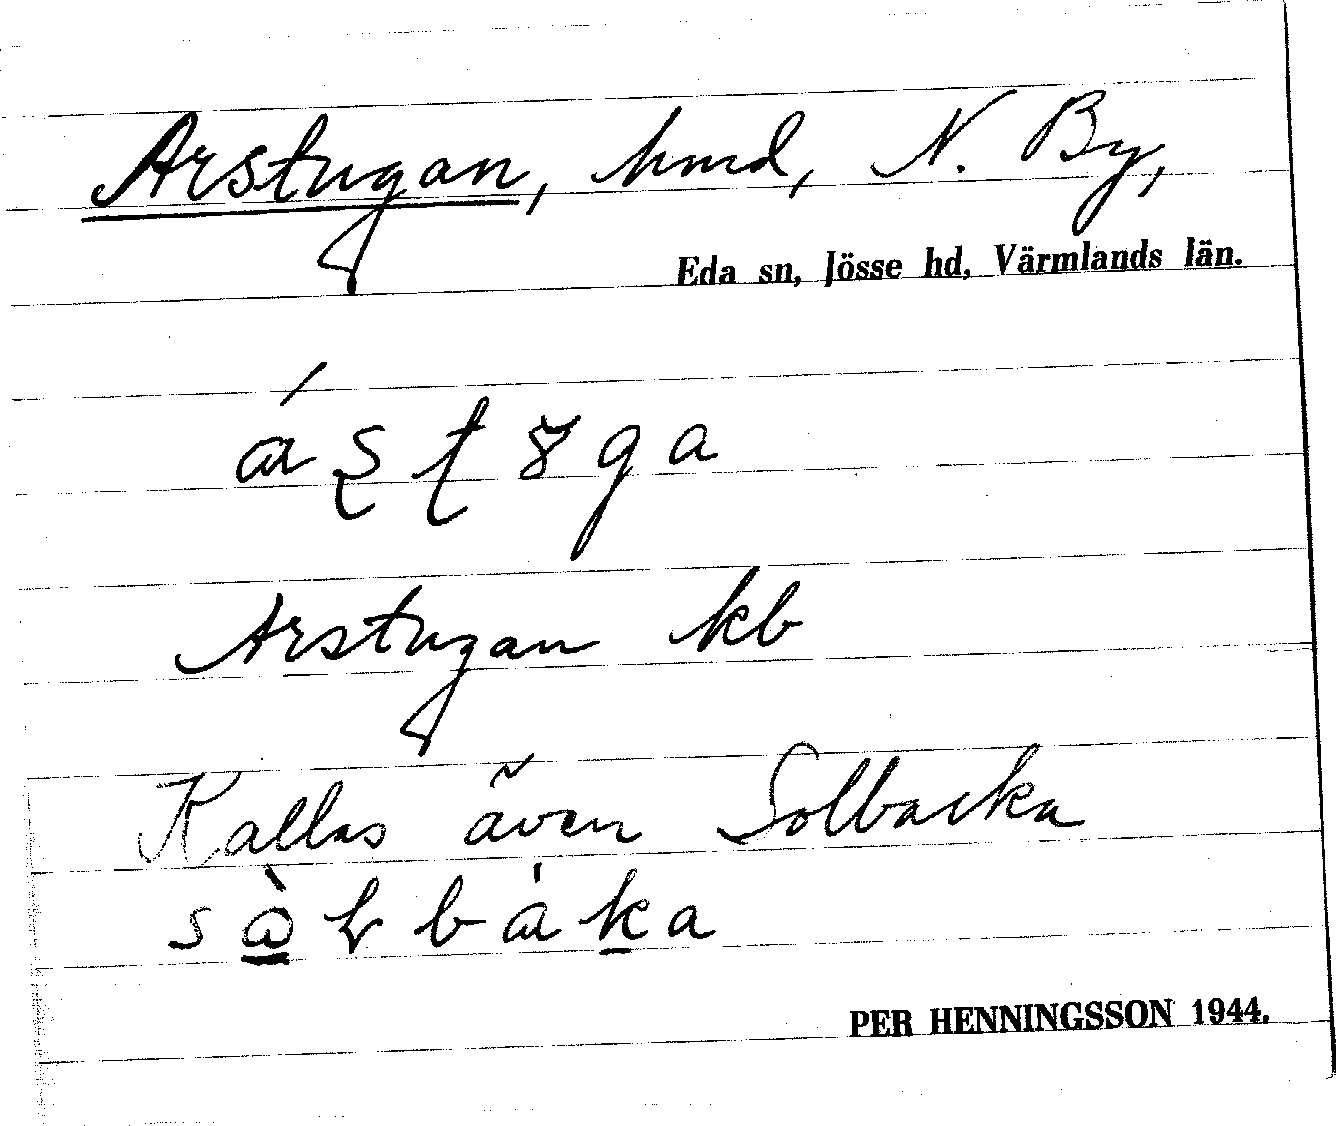 Arstugan, hmd, N. By,
Eda sn, Jösse hd, Värmlands län.
Arstugan kb
Kallas även Solbacka
PER HENNINGSSON 1944.